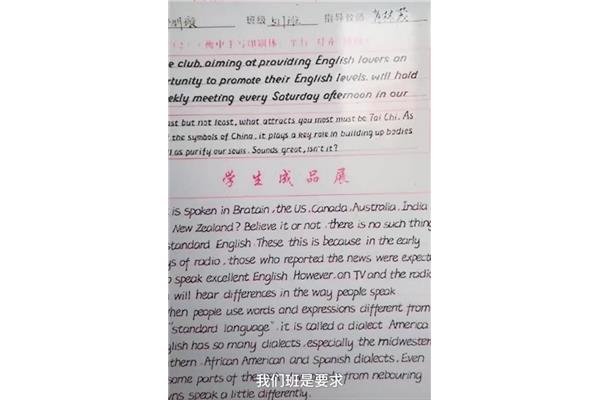 班级 指导教师
e club, aiming at providing English lovers an
rtunity to promote their English levels, will hold
ekly meeting every Saturday afternoon in our
ast but not least, what attracts you most must be Tai Chi. As
the symbols of China, it plays a key role in building up bodies
ll as purify our souls. Sounds great, isn't it?
学生成品展
is spoken in Bratain, the US, Canada, Australia, India
New Zealand? Believe it or not, there is no such thing
standard English. These this is because in the early
ys of radio, those who reported the news were expect
o speak excellent English. However, on TV and the radio
will hear differences in the way people speak
hen people use words and expressions different from
"standard language", it is called a dialect America
glish has so many dialects, especially the midwestern
thern, African American and Spanish dialects. Even
some parts of the from nebouring
wns speak a little differently.
我们班是要求